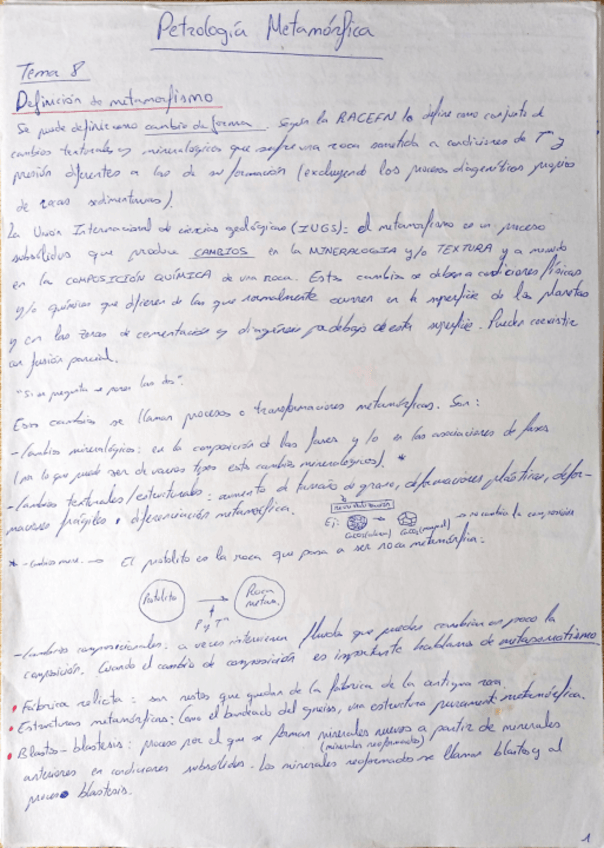 Petrología Metamórfica
Tema 8
Definición de metamorfismo
Se puede definir como cambio de forma. Según la RACEFN lo define como conjunto de
cambios texturales y mineralógicos que sufre una roca sometida a condiciones de Tª y
presión diferentes a las de su formación (excluyendo los procesos diagenéticos propios
de rocas sedimentarias).
La Unión Internacional de ciencias geológicas (IUGS): el metamorfismo es un proceso
subsólidus que produce CAMBIOS en la MINERALOGIA y/o TEXTURA y a menudo
en la COMPOSICIÓN QUÍMICA de una roca. Estos cambios se deben a condiciones físicas
y/o químicas que difieren de las que normalmente ocurren en la superficie de los planetas
y en las zonas de cementación y diagénesis por debajo de esta superficie. Pueden coexistir
con fusión parcial.
"Si se pregunta se ponen las dos".
Esos cambios se llaman procesos o transformaciones metamórficas. Son:
-Cambios mineralógicos: en la composición de las fases y/o en las asociaciones de fases
(por lo que puede ser de varios tipos estos cambios mineralógicos). *
-Cambios texturales/estructurales: aumento del tamaño de grano, deformaciones plásticas, defor-
maciones frágiles, diferenciación metamórfica.
Ej: → → no cambia la composición
* → El protolito es la roca que pasa a ser roca metamórfica:
Protolito → Roca
metam.
P y Tª
-Cambios composicionales: a veces intervienen fluidos que pueden cambiar un poco la
composición. Cuando el cambio de composición es importante hablamos de metasomatismo
• Fábrica relicta: son restos que quedan de la fábrica de la antigua roca
• Estructuras metamórficas: Como el bandeado del gneiss, una estructura puramente metamórfica.
• Blastos-blastesis: proceso por el que se forman minerales nuevos a partir de minerales
(minerales neoformados)
anteriores en condiciones subsólidas. Los minerales neoformados se llaman blastos y al
proceso blastesis.
1